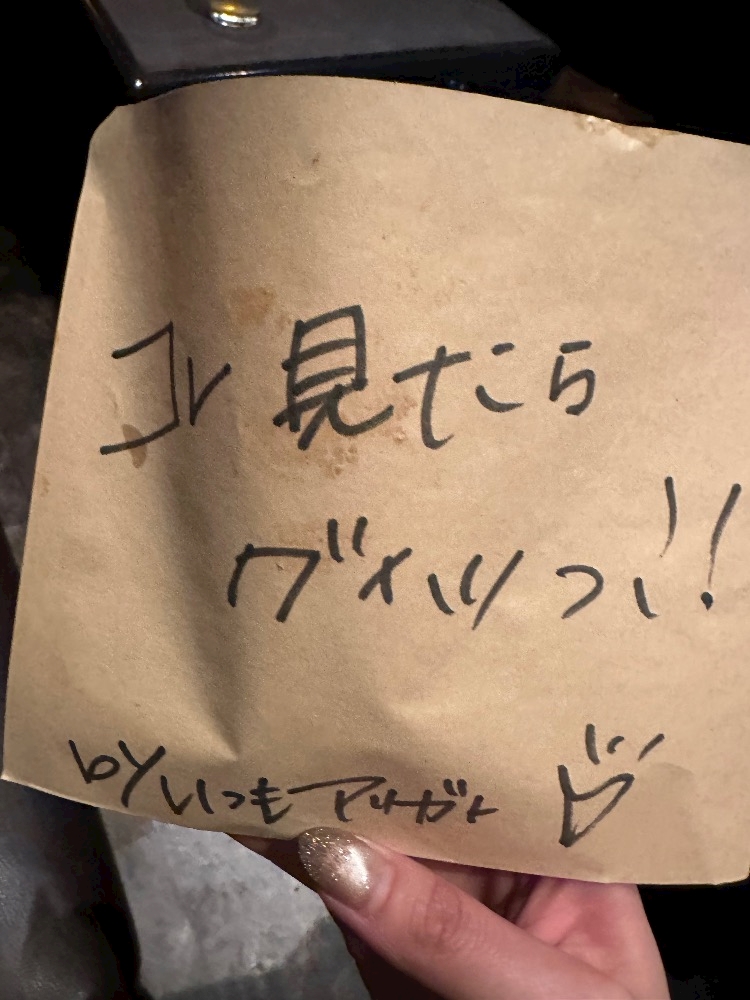 コレ見たら
グイッっ!!
byいつもアリガト